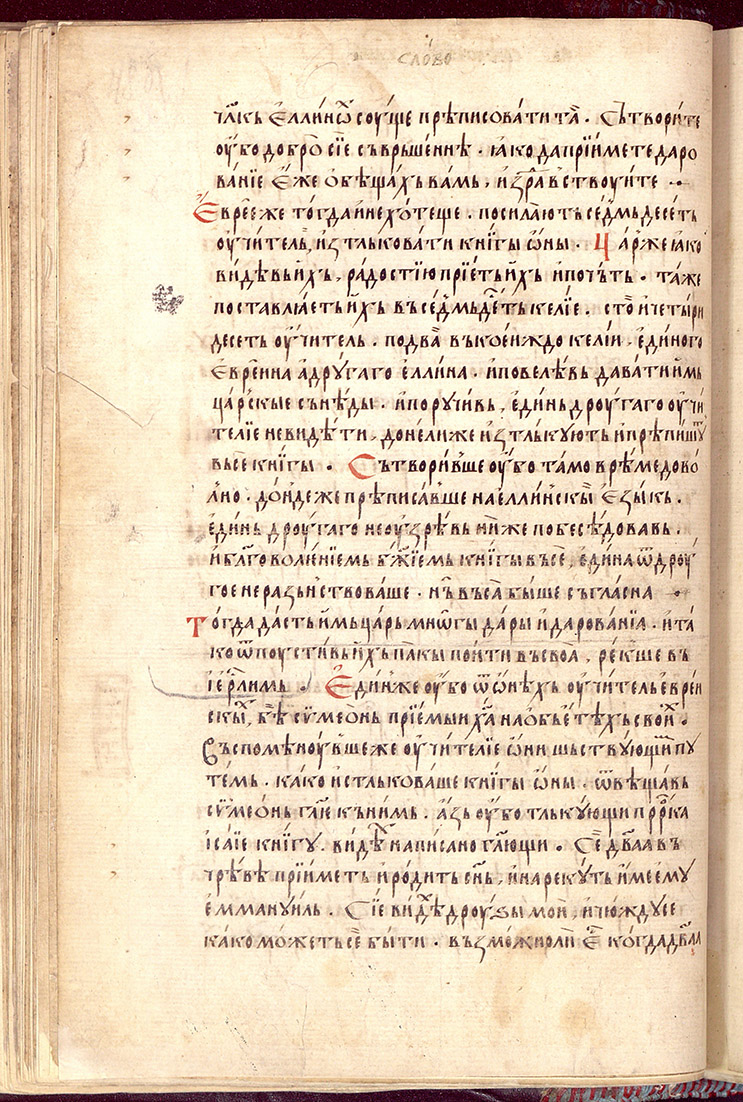 слово
члкь еллинѡ соуще прѣписовати та . Сьтворите
оубо добро сїе сьврьшеннѣ . ꙗко да прїимете даро
ванїе еже обѣщахь вамь , и здравствоуите
Еврее же тогда и не хотеще . посилають седмьдесеть
оучитель , изтльковати книгы ѡны . Царже ꙗко
видѣвь ихь , радостїю прїеть ихь и почьть . таже
поставлꙗеть ихь вь седмьдеть келїе . сто и четыри
десеть оучитель . по два вь коеиждо келїи , единого
евреина а другаго еллина . и повелѣвь давати имь
царскые сьнѣды . и поручивь , единь дроугаго оучи
телїе не видѣти , донелиже изтлькують и прѣпишу
вьсе книгы . Сьтворивше оубо тамо врѣме дово
лно . дондеже прѣписавше на еллинскы езыкь .
единь дроугаго не оузрѣвь ниже побесѣдовавь .
и благоволенїемь бжїемь книгы вьсе , едина ѿ дроу
гое не разьнствоваше . нь вьса быше сьгласна
Тогда дасть имь царь мнѡгы дары и дарованїа . и та
ко ѿпоустивь ихь пакы поити вь своа , рекше вь
іерлимь . Единже оубо ѿ ѡнѣхь оучитель евреи
скы , бѣ сѵмеонь прїемыи ха на обьетѣхь свои .
Вьспоменоувше же оучителїе ѡни шьствующи пу
темь . како истльковаше книгы ѡны . ѿвѣщавь
сѵмеонь гле кь нимь . азь оубо тлькующи пррка
ісаїе книгу . видѣ написано глющи . Се два а вь
чрѣвѣ прїиметь и родить снь , и нарекуть име ему
еммануиль . Сїе видѣ дроузы мои , и чюждусе
како можеть се быти . вьзможноли е когда двалл